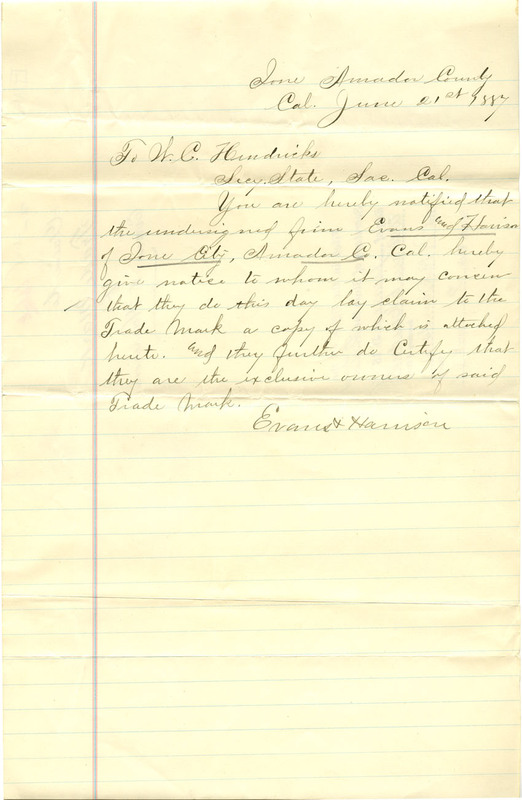 Ione Amador County
Cal. June 21st 1887
To W. C. Hendricks
Sec. State, Sac. Cal.
You are hereby notified that
the undersigned firm Evans and Harison
of Ione City, Amador Co. Cal. hereby
give notice to whom it may concern
that they do this day lay claim to the
Trade Mark a copy of which is attached
hereto. and they further do Certify that
they are the exclusive owners of said
Trade Mark.
Evans & Harrison